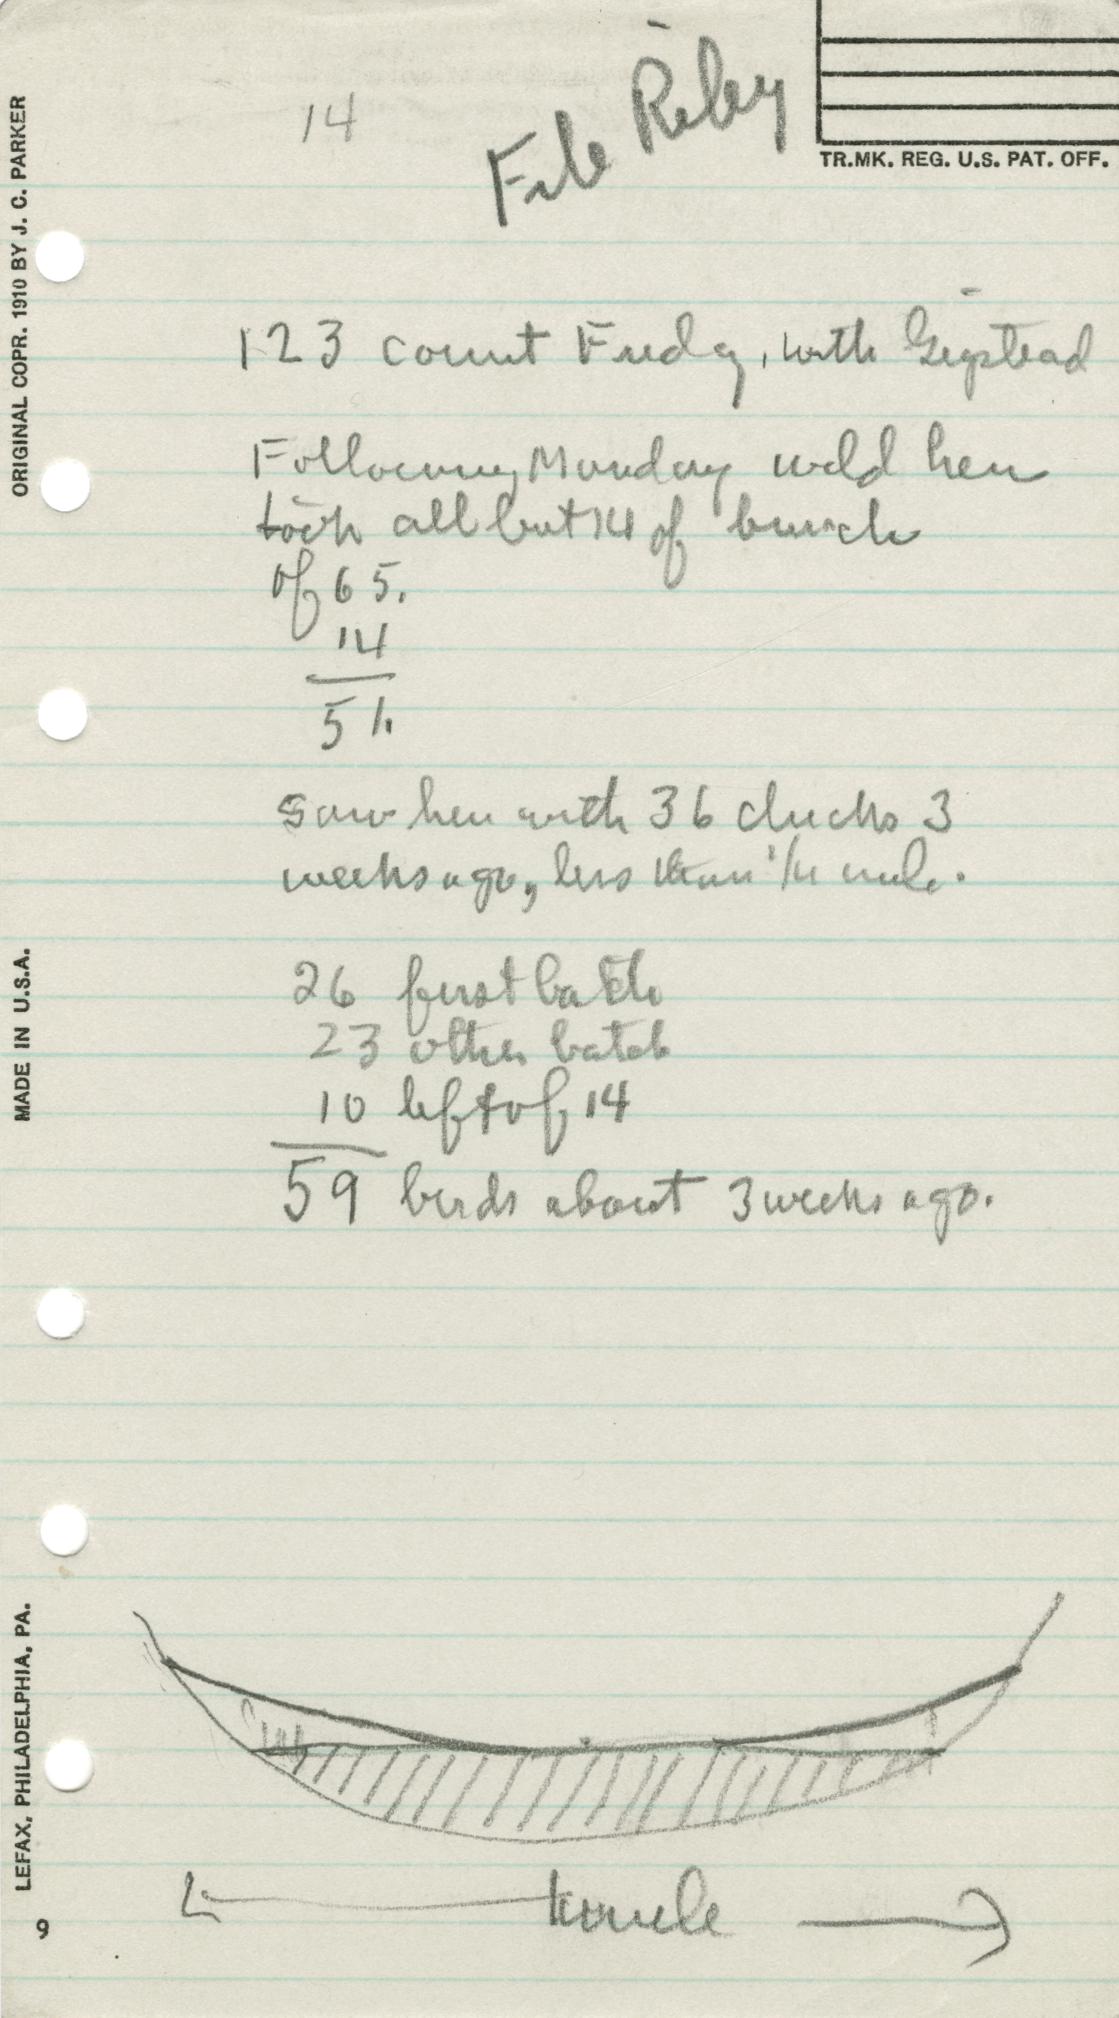 14
File Riley
TR.MK. REG. U.S. PAT. OFF.
ORIGINAL COPR. 1910 BY J. C. PARKER
123 count Friday, with
Following Monday wild hen
took all but 14 of bunch
of 65.
14
51.
Saw hen with 36 chicks 3
weeks ago, less than 1/4 mile.
26 first batch
23 other batch
10 left of 14
59 birds about 3 weeks ago.
MADE IN U.S.A.
LEFAX, PHILADELPHIA, PA.
9